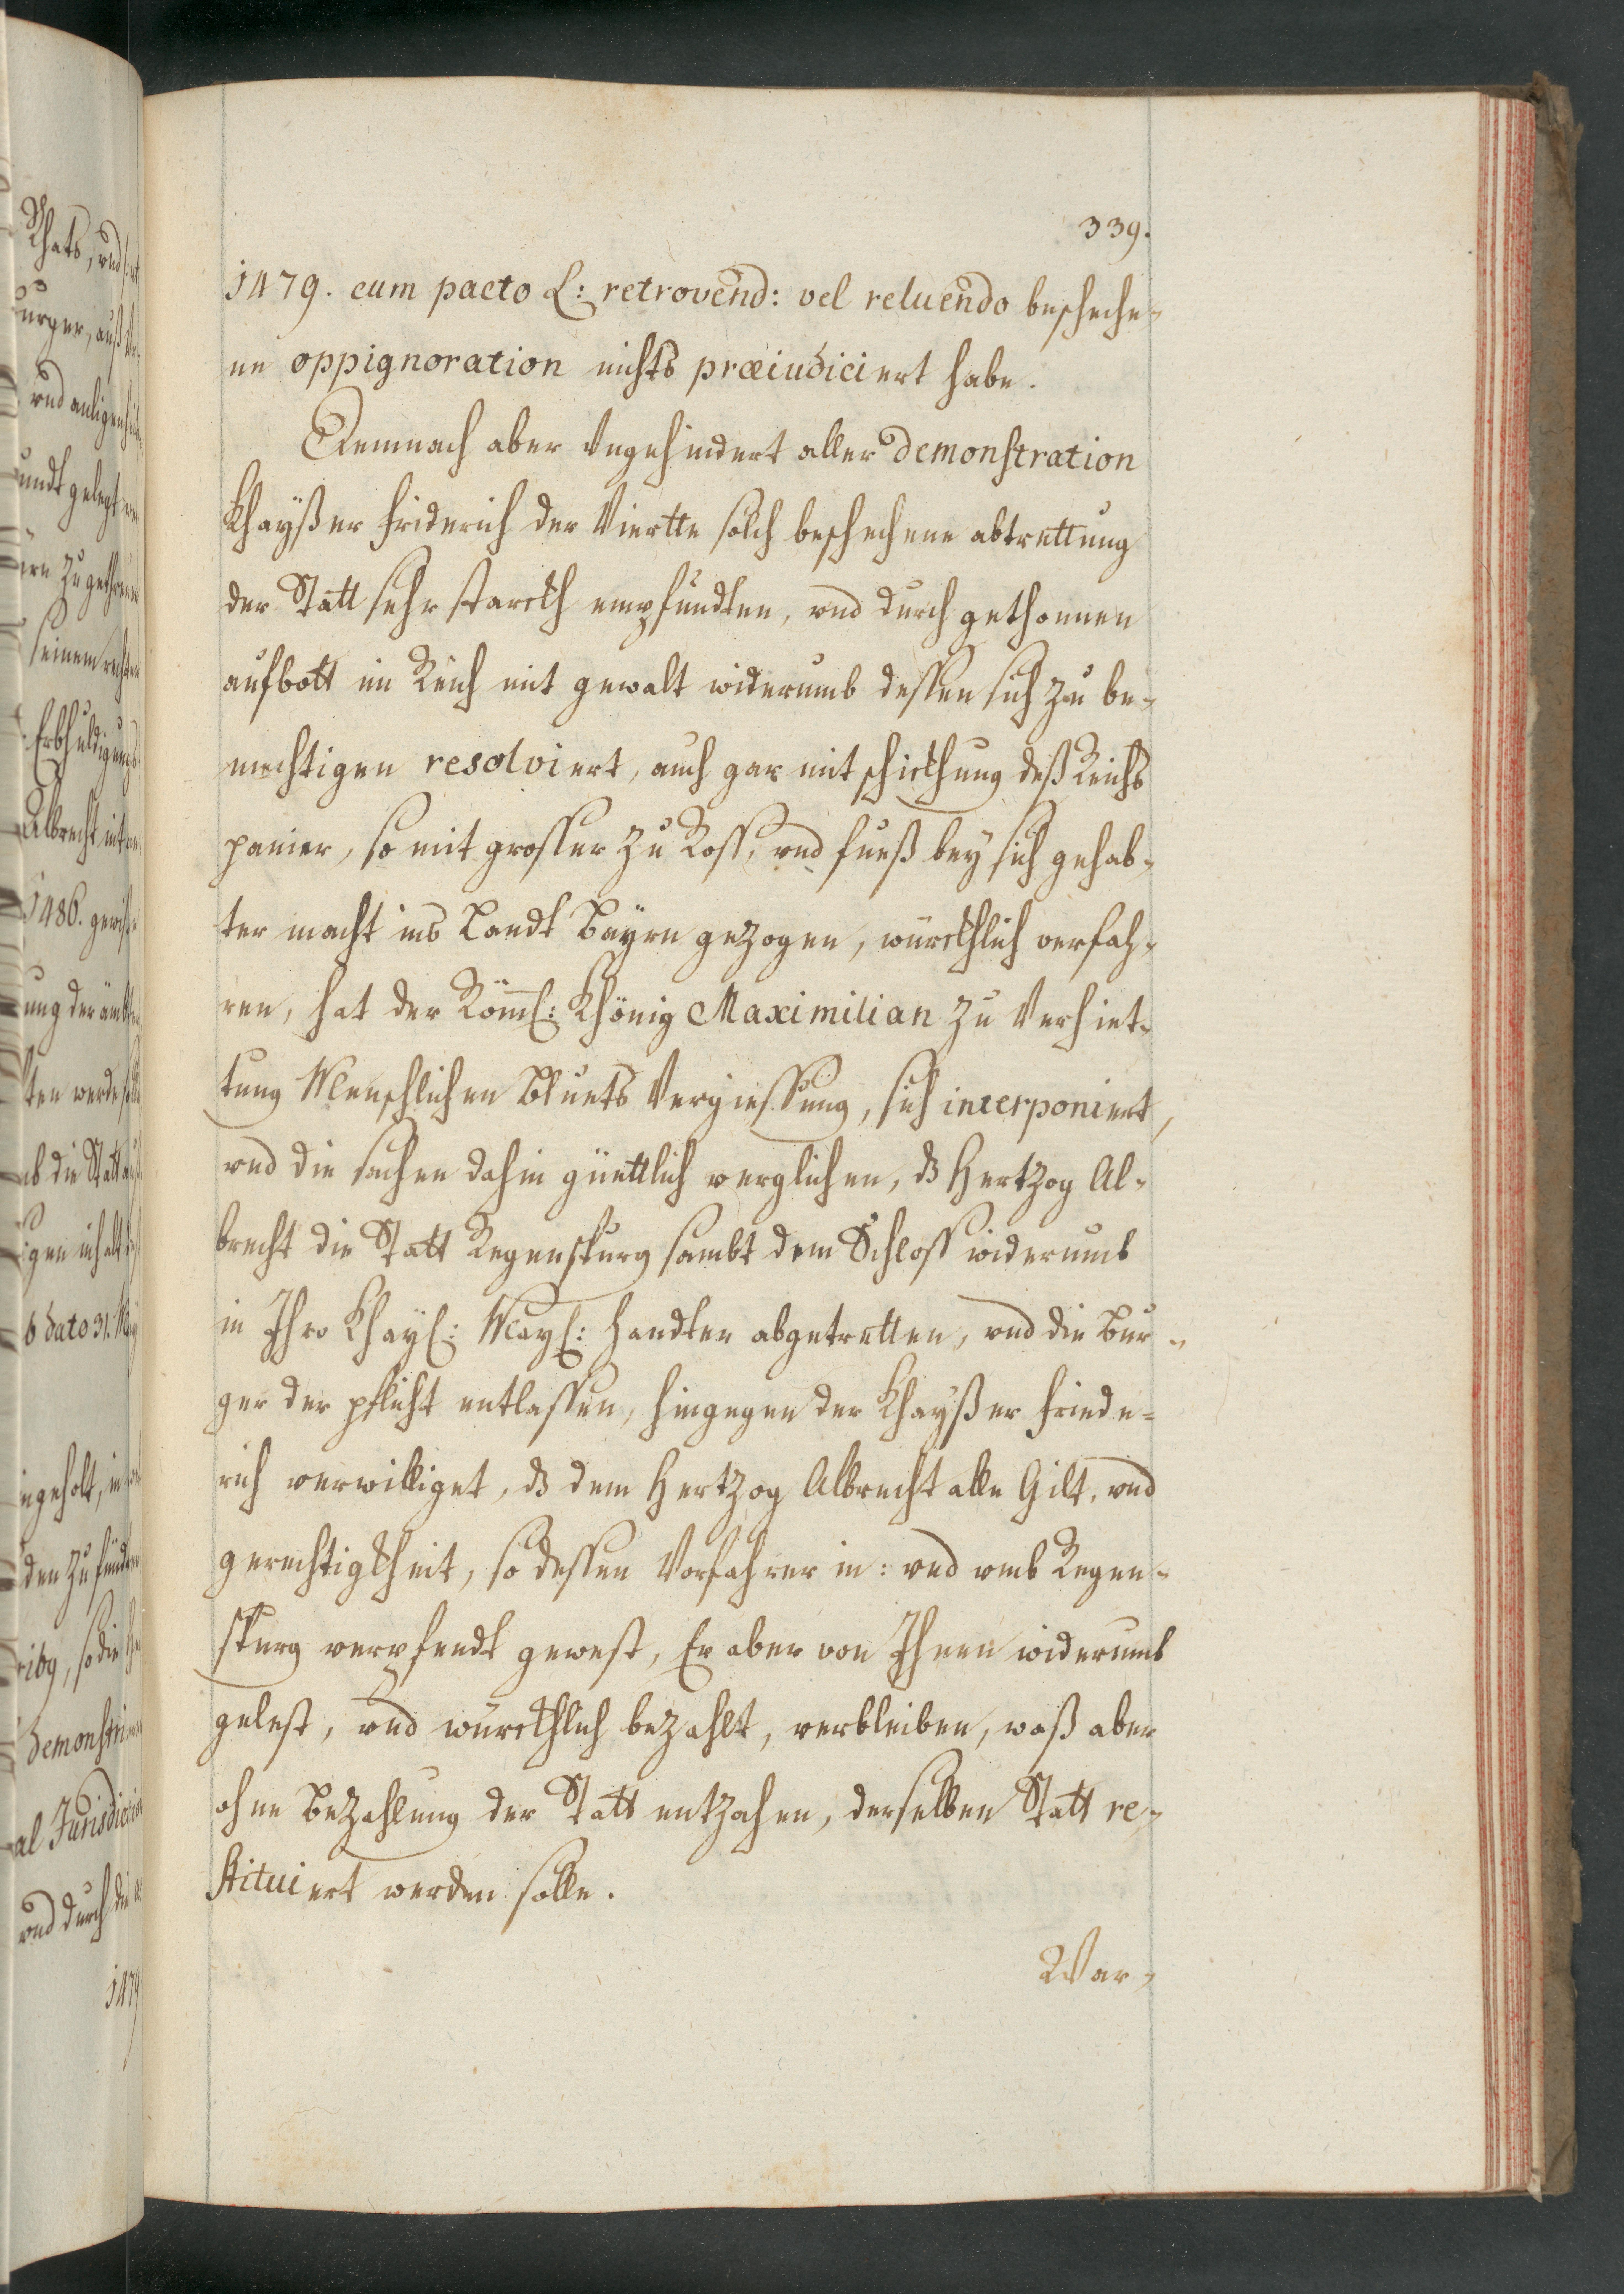 339.
1479. cum pacto L: retrovend: vel reluendo bescheche-
ne oppignoration nichts præiudiciert habe.
Demnach aber Ungehindert aller demonstration
Khayßer Friderich der Viertte solch beschechene abtrettung
der Statt sehr starckh empfundten, vnd durch gethonnen
aufbott im Reich mit gewalt widerumb dessen sich zu be-
mechtigen resolviert, auch gar mit schickhung deß Reichs
panier, so mit grosser zu Ross, vnd fueß bey sich gehab-
ter macht ins Landt Bayrn gezogen, würckhlich verfah-
ren, hat der Römis: Khönig Maximilian zu Verhiet-
tung Menschlichen Bluets Vergiessung, sich interponiert,
vnd die sachen dahin güettlich verglichen, dß Hertzog Al-
brecht die Statt Regenspurg sambt dem Schloss widerumb
in Ihro Khayß: Mayß: handten abgetretten, vnd die Bur-
ger der pflicht entlassen, hingegen der Khayßer Friede-
rich verwilliget, dß dem Hertzog Albrecht alle Gilt, vnd
gerechtigkheit, so dessen Vorfahrer in: vnd vmb Regen-
spurg verpfendt gewest, Er aber von Ihnen widerumb
gelest, vnd würckhlich bezahlt, verbleiben, waß aber
ohne Bezahlung der Statt entzohen, derselben Statt re-
stituiert werden solle.
War-